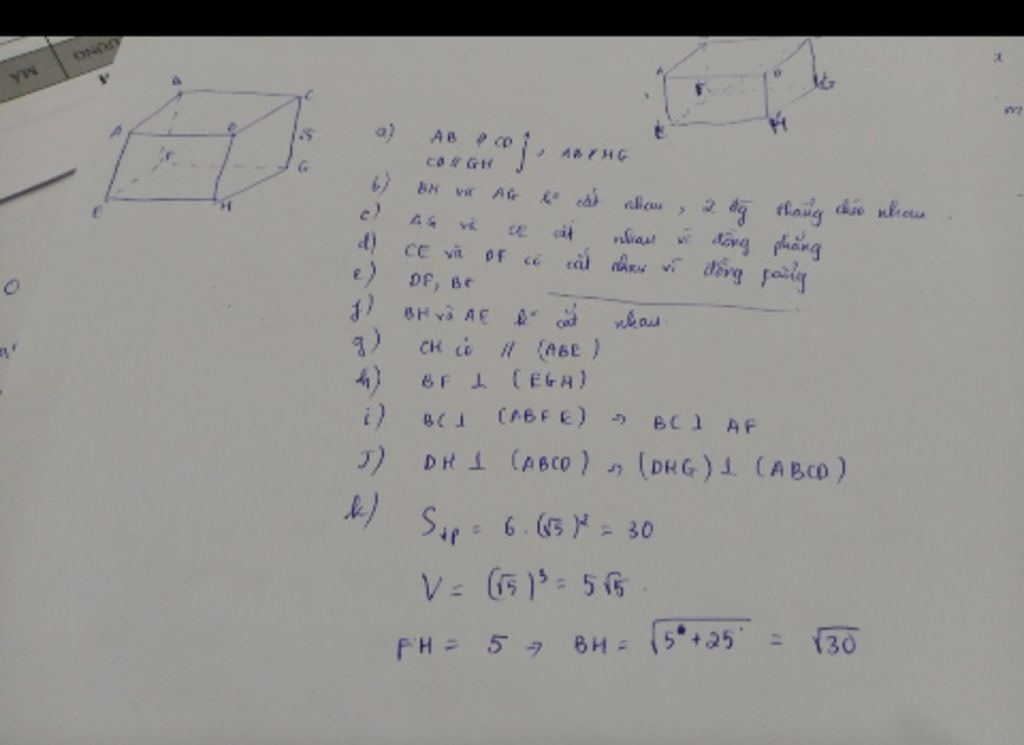 MÃ
ƯỢNG
a) AB // CD
CD // GH } → AB // HG
b) BH và AG k° cắt nhau, 2 đg thẳng chéo nhau
c) AG và CE cắt nhau vì đồng phẳng
d) CE và DF có cắt nhau vì đồng phẳng
e) DF, BF
f) BH và AE k° cắt nhau.
g) CH có // (ABE)
h) BF ⊥ (EGH)
i) BC ⊥ (ABFE) → BC ⊥ AF
J) DH ⊥ (ABCD) → (DHG) ⊥ (ABCD)
k) Stp = 6.(√5)² = 30
V = (√5)³ = 5√5.
FH = 5 → BH = √5+25 = √30